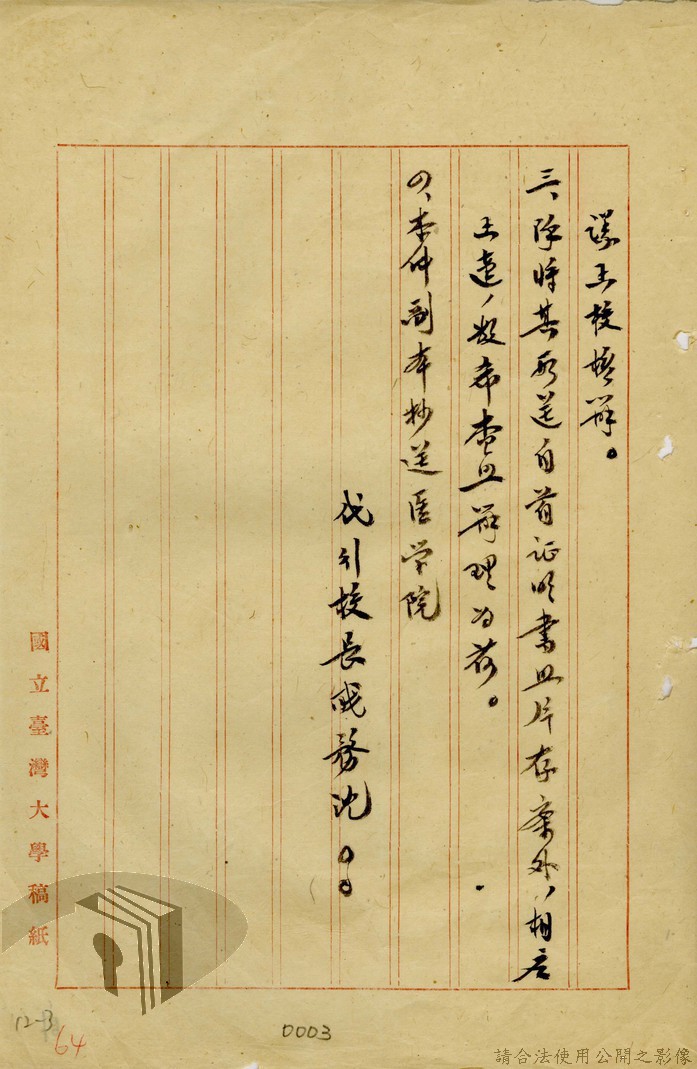 談王校檢辦。
三、除將其所送自首证明書照片存案外,相應
上達,敬希查照辦理为荷。
四、本件副本抄送医学院
代行校長職務沈〇〇
國立臺灣大學稿紙
12-3
64
0003
請合法使用公開之影像